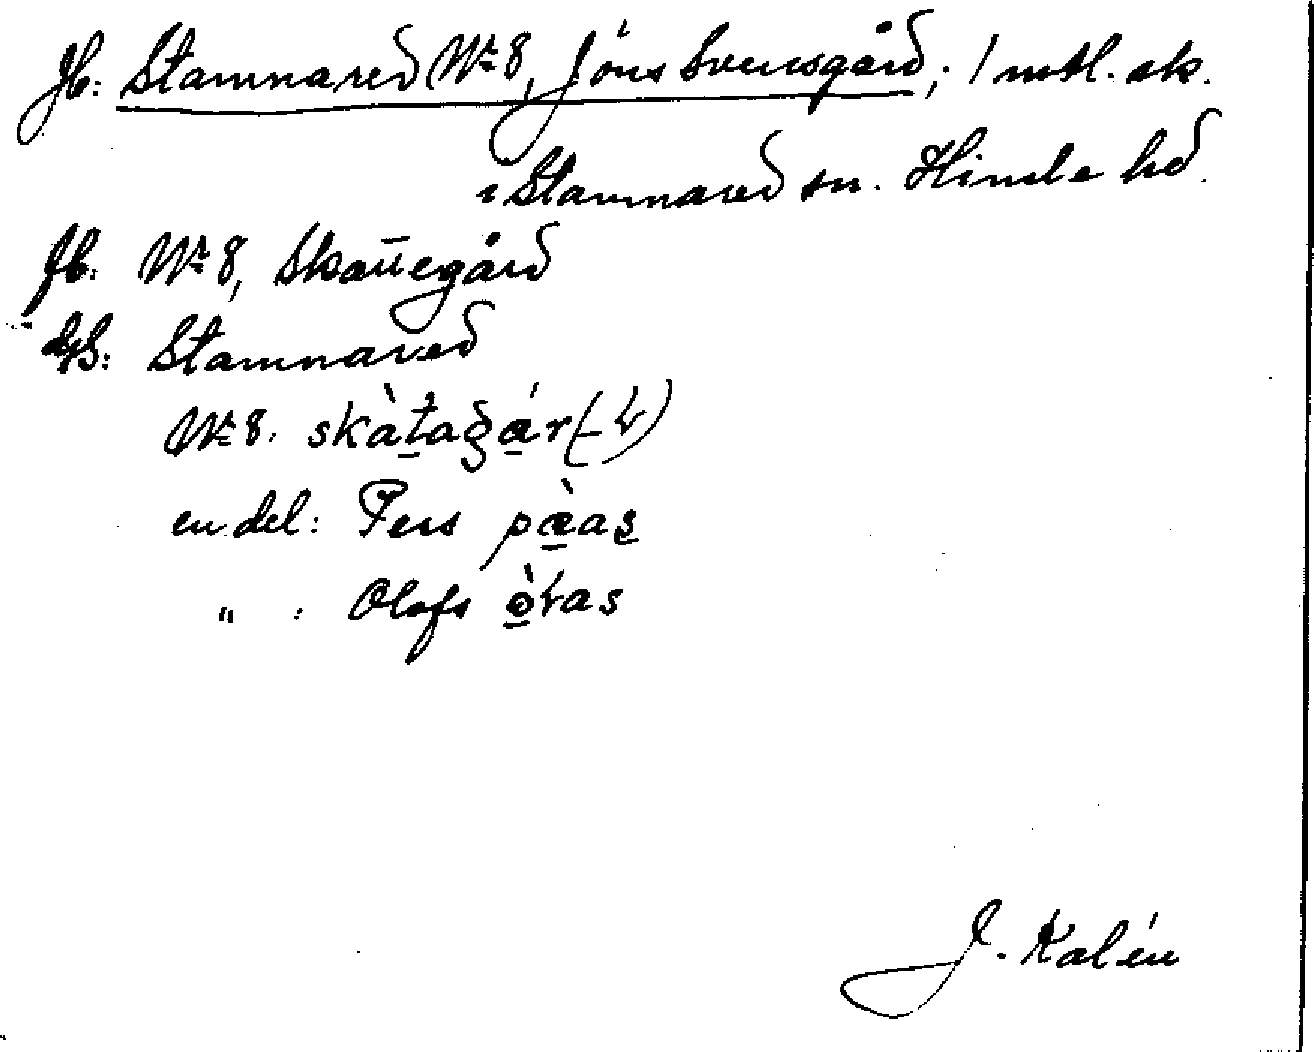 Jb: Stamnared Nr 8, Jöns Svensgård; 1 mtl. sk.
i Stamnared sn. Himle hd.
fb. Nr 8, Skattegård
Stamnared
Nr 8. skàtagár(-ɽ)
en del: Pers pæ̀as
" : Olofs òɽas
J. Kalén